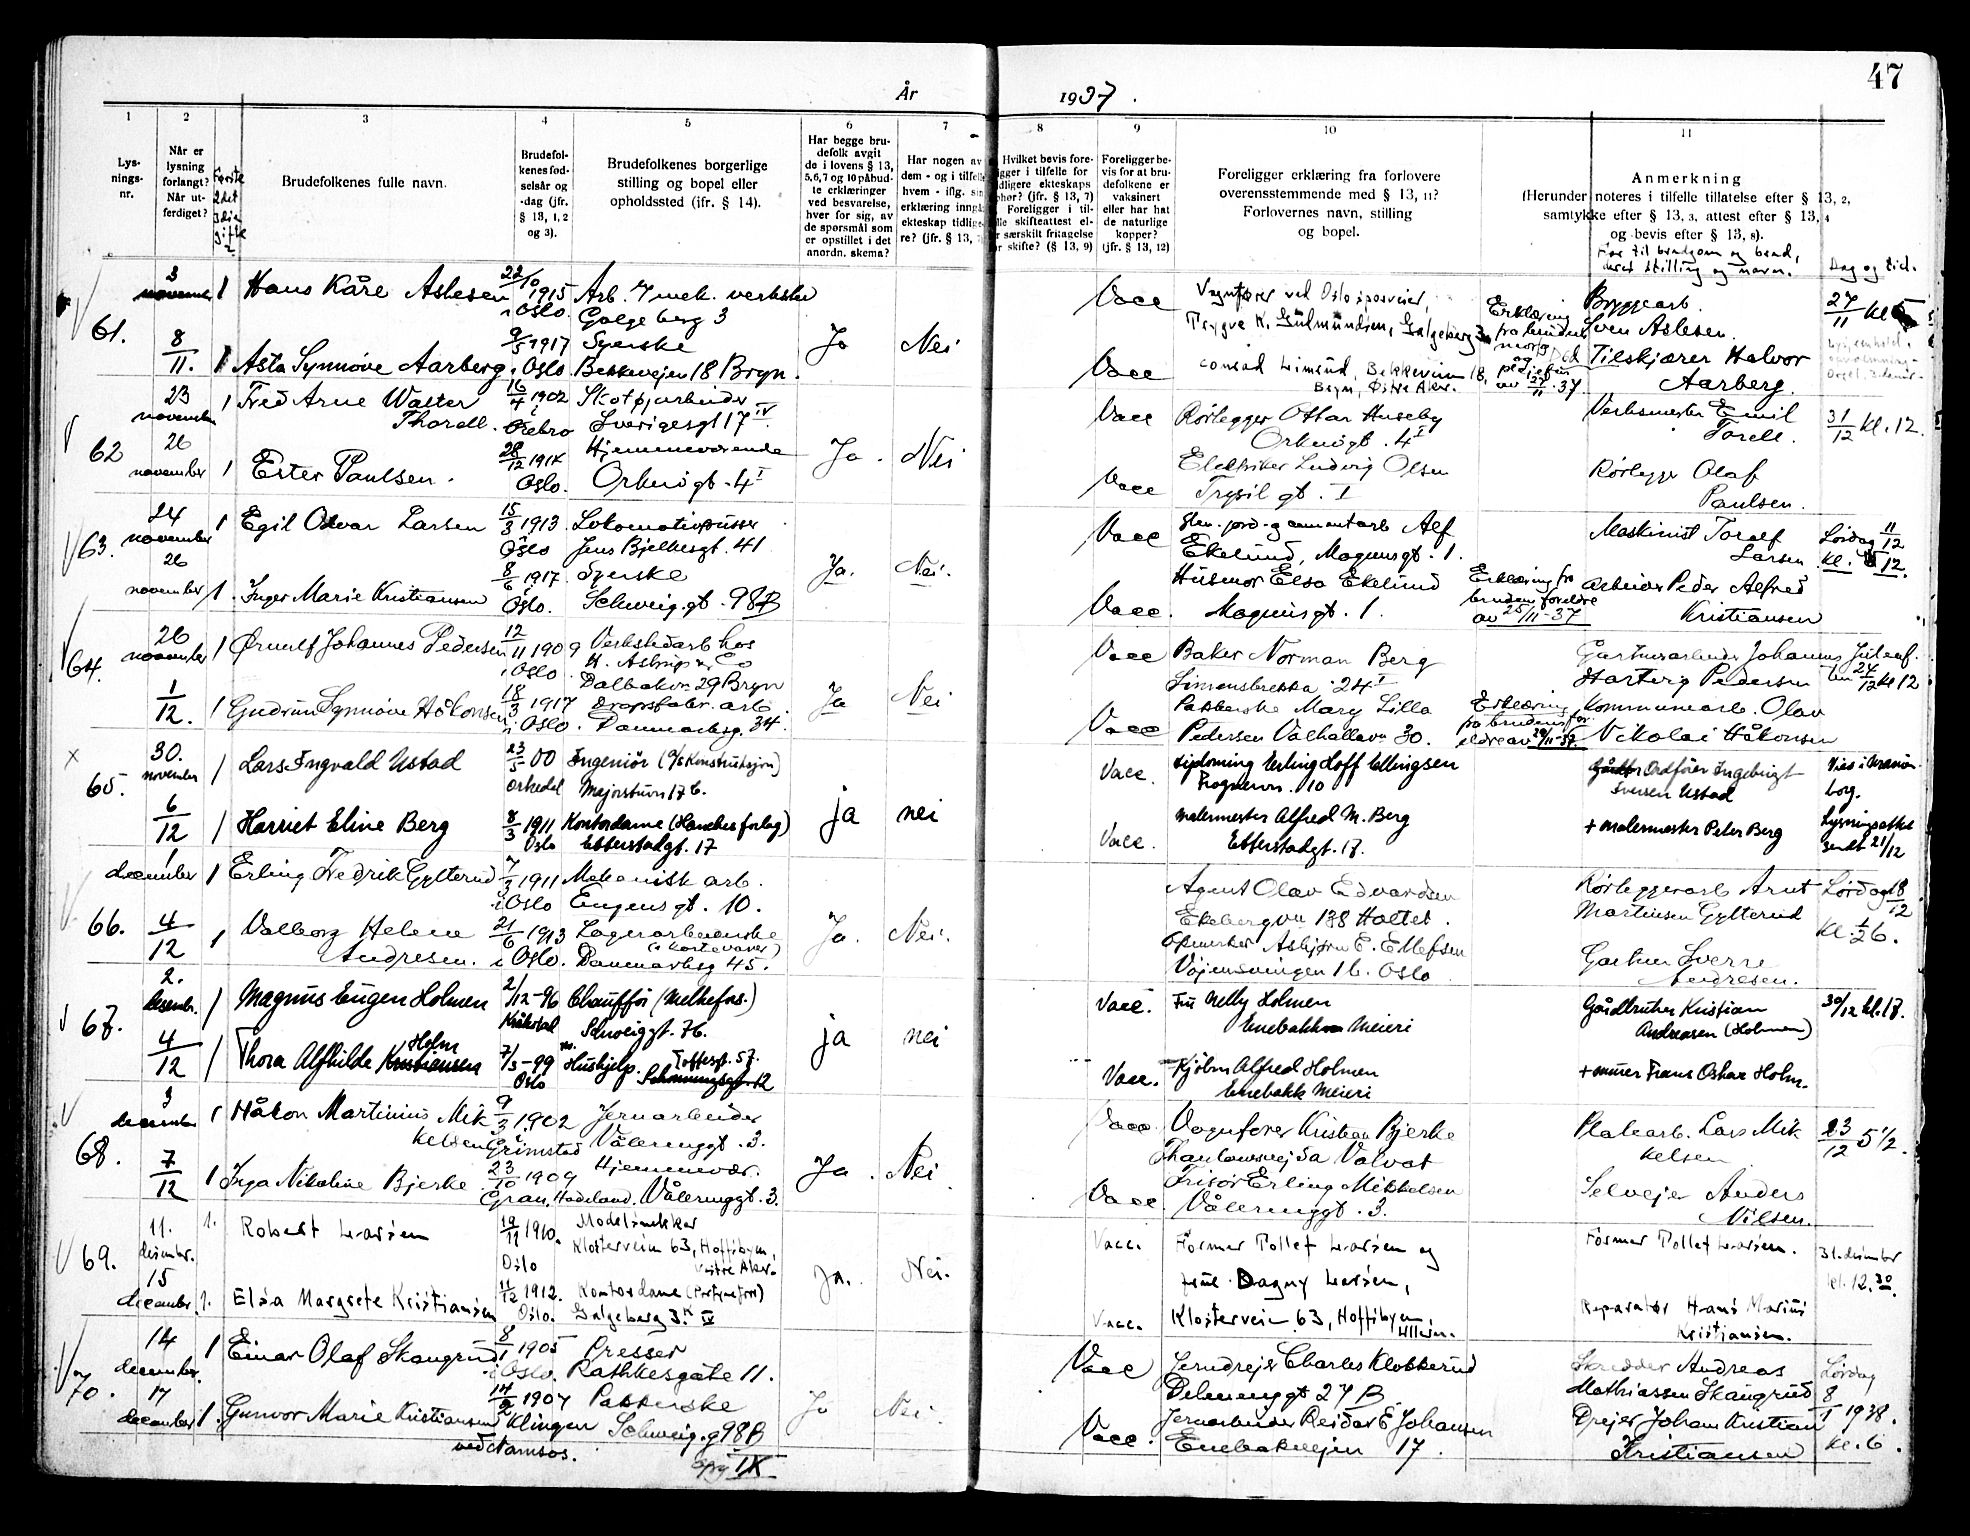 47
År 1937.
1 2 3 4 5 6 7 8 9 10 11
Lys-
nings-
nr.
Når er
lysning
forlangt?
Når ut-
ferdiget?
Brudefolkenes fulle navn.
Brudefol-
kenes fød-
selsår og
-dag (jfr.
§ 13, 1, 2
og 3).
Brudefolkenes borgerlige
stilling og bopel eller
opholdssted (jfr. § 14).
Har begge bru-
defolk avgit
de i lovens § 13,
5, 6, 7 og 10 påbud-
te erklæringer
ved besvarelse,
hver for sig, av
de spørsmål som
er opstillet i det
anordn. skema?
Har nogen av
dem - og i tilfelle
hvem - iflg. sin
erklæring inngått
ekteskap tidlige-
re? (jfr. § 13,
Hvilket bevis fore-
ligger i tilfelle for
tidligere ekteskaps
ophør? (§ 13, 7)
Foreligger i til-
felle skifteattest el-
ler særskilt fritagelse
for skifte? (§ 13, 9)
Foreligger be-
vis for at bru-
defolkene er
vaksinert
eller har hat
de naturlige
kopper?
(jfr. § 13, 12)
Foreligger erklæring fra forlovere
overensstemmende med § 13, 11?
Forlovernes navn, stilling
og bopel.
Anmerkning
(Herunder noteres i tilfelle tillatelse efter § 13, 2,
samtykke efter § 13, 3, attest efter § 13, 4
og bevis efter § 13, 8).
Far til brudgom og brud,
deres stilling og navn.
Dag og tid.
61.
3 november 1 Hans Kåre Aslesen 22/10 1915 i Oslo. Arb. mek. verksted
Galgeberg 3
Vacc Vognfører ved Oslo sporveier,
Trygve K. Gulmundsen, Galgeberg 3
Bryggearb.
Sven Aslesen. 27/11 kl 5
8/11. 1 Asta Synnøve Aarberg 9/5 1917 i Oslo. Syerske
Bekkevejen 18 Bryn.
Ja Nei
Vacc Conrad Limsud, Bekkeveien 18,
Bryn, Østre Aker.
Erklæring
fra brudens
mor og
av 27/11-37
Tilskjærer Halvor
Aarberg.
62
23 november 1 Fred Arne Walter
Thorell. 16/4 1902 i Örebro Skotøjarbeider
Sverigesgt 17 IV
Vacc Rørlegger Ottar Huseby
Orknøgt. 4 I
Verksmester Emil
Torell. 31/12 kl. 12.
26 november 1 Ester Paulsen. 28/12 1914 Oslo. Hjemmeværende
Orknøgt. 4 I
Ja. Nei
Vacc Elektriker Ludvig Olsen
Trysilgt. I
Rørlegger Olaf
Paulsen.
63.
24 november 1 Egil Odvar Larsen 15/3 1913 Oslo Lokomotivpusser
Jens Bjelkesgt. 41
Vacc Sten- jord- og cementarb Alf
Ekelund, Magnusgt. 1.
Maskinist Toralf
Larsen Lørdag 11/12
kl. 12.
26 november 1. Inger Marie Kristiansen 8/6 1917. Oslo. Syerske
Schweig.gt. 98B
Ja. Nei.
Vacc. Husmor Elsa Ekelund
Magnusgt. 1.
Erklæring fra
brudens foreldre
av 25/11-37
Arbeider Peder Alfred
Kristiansen
64.
26 november 1 Ørnulf Johannes Pedersen 12/11 1909 i Oslo Verkstedarb hos
H. Astrup & Co
Dalbakvn 29 Bryn
Vacc Baker Norman Berg
Simensbrekka 24 I
Gartnerarbeider Johannes
Hartvig Pedersen Juleaften 24/12 kl 12
1/12. 1 Gudrun Synnøve Håkonsen 18/3 1917 i Oslo. Dropsfabr. arb.
Danmarksg. 34.
Ja Nei
Vacc Pakkerske Mary Lilla
Pedersen Valhallavn 30.
Erklæring
fra brudens for-
eldre av 29/11-37.
Kommunearb. Olav
Nikolai Håkonsen
65.
30. november 1 Lars Ingvald Ustad 23/5 00 Orkedal Ingeniör (A/S Konstruksjon)
Majorstuvn 17 b.
Vacc. diploming Erling Hoff Ellingsen
Frognervn. 10
Ordfører Ingebrigt
Iversen Ustad Vies i
borg.
6/12 1 Harriet Eline Berg 8/3 1911 Oslo Kontordame (Hanches forlag)
Etterstadgt. 17
ja nei
Vacc. malermester Alfred M. Berg
Etterstadgt. 17.
+ malermester Peter Berg Lysningsattest
sendt 21/12
66.
1 december 1 Erling Fredrik Gytterud 7/3 1911 i Oslo Mekanisk arb.
Eugensgt. 10.
Agent Olav Edvardsen
Ekebergvn 138 Holtet.
Rørleggerarb Arnt
Martinsen Gytterud Lørdag 18/12
kl. ½6.
4/12 1 Valborg Helene
Andresen. 21/6 1913 i Oslo. Lagerarbeiderske
(i kortevarer)
Danmarksg 45.
Ja. Nei.
Asbjørn E. Ellefsen
Vøiensvingen 16. Oslo
Gartner Sverre
Andresen.
67.
2. desembr. 1 Magnus Eugen Holmen 2/12-96 Chauffør (Melkefors.)
Schweiggt. 76.
Vacc. Fru Nelly Holmen
Enebakk Meieri
Gårdbruker Kristian
Andreasen (Holmen) 30/12 kl. 17.
4/12 1 Thora Alfhilde Holm 7/5-99 Oslo Hushjelp. Toftesgt. 57.
ja nei
Vacc. Kjölm Alfred Holmen
Enebakk Meieri
+ murer Frans Oskar Holm.
68.
3 december 1 Håkon Martinius Mik
kelsen 9/3 1902 Grimstad Jernarbeider
Vålerenggt. 3.
Vacc Vognfører Kristian Bjerke
Thaulowsvej 5a Volvat
Platearb. Lars Mik
kelsen 23/12 5½.
7/12 1 Inga Nikoline Bjerke 23/10 1909 Gran, Hadeland. Hjemmevær.
Vålerenggt. 3.
Ja. Nei
Vacc Frisør Erling Mikkelsen
Vålerenggt. 3.
Selvejer Anders
Nilsen.
69.
11. desember. 1. Robert Larsen 19/11 1910. Oslo Modelsnekker
Klosterveien 63, Hoffsbyen,
Vestre Aker.
Vacc. Former Tollef Larsen og
frue Dagny Larsen,
Former Tollef Larsen. 31. desember
kl. 12.30.
15 december 1. Elsa Margrete Kristiansen 11/12 1912. Oslo. Kontordame
Galgeberg 3 IV
Ja. Nei.
Vacc. Klosterveien 63, Hoffsbyen,
Ullern.
Reparatør Hans Marius
Kristiansen.
70.
14 december. 1 Einar Olaf Skaugrud 8/1 1905 i Oslo. Presser
Rathkesgate 11.
Vacc Jerndrejer Charles Klokkerud
Delenenggt 27 B
Skredder Andreas
Mathiassen Skaugrud Lørdag
8/1 1938.
kl. 6.
17 december 1. Gunvor Marie Kristiansen 14/2 1907 Klingen
ved Namsos. Pakkerske
Schweig.g 98 B
opg IX
Ja Nei.
Vacc. Jernarbeider Reidar E. Johansen
Enebakvejen 17.
Drejer Johan Kristian
Kristiansen